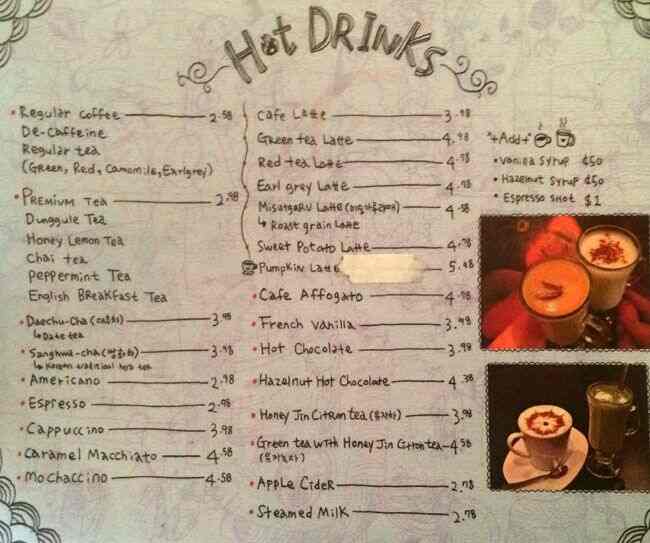 Hot DRINKS
Regular Coffee 2.58
De-Caffeine
Regular tea
(Green, Red, Camomile, Earlgrey)
PREMIUM Tea 2.98
Dunggule Tea
Honey Lemon Tea
Chai tea
Peppermint Tea
English Breakfast Tea
Daechu-Cha (대추차) 3.98
↳ Date tea
Sanghwa-cha (쌍화차) 3.98
↳ Korean traditional herb tea
Americano 2.98
Espresso 2.98
Cappuccino 3.98
Caramel Macchiato 4.58
Mochaccino 4.58
Cafe Latte 3.98
Green tea Latte 4.98
Red tea Latte 4.58
Earl grey Latte 4.58
Misutgaru Latte (미숫가루라떼) 4.58
↳ Roast grain Latte
Sweet Potato Latte 4.78
Pumpkin Latte 5.48
Cafe Affogato 4.78
French Vanilla 3.98
Hot Chocolate 3.98
Hazelnut Hot Chocolate 4.38
Honey Jin Citron tea (유자차) 3.98
Green tea with Honey Jin Citron tea 4.58
(유자녹차)
Apple Cider 2.78
Steamed Milk 2.78
"+Add+"
Vanilla Syrup ¢50
Hazelnut Syrup ¢50
Espresso Shot $1